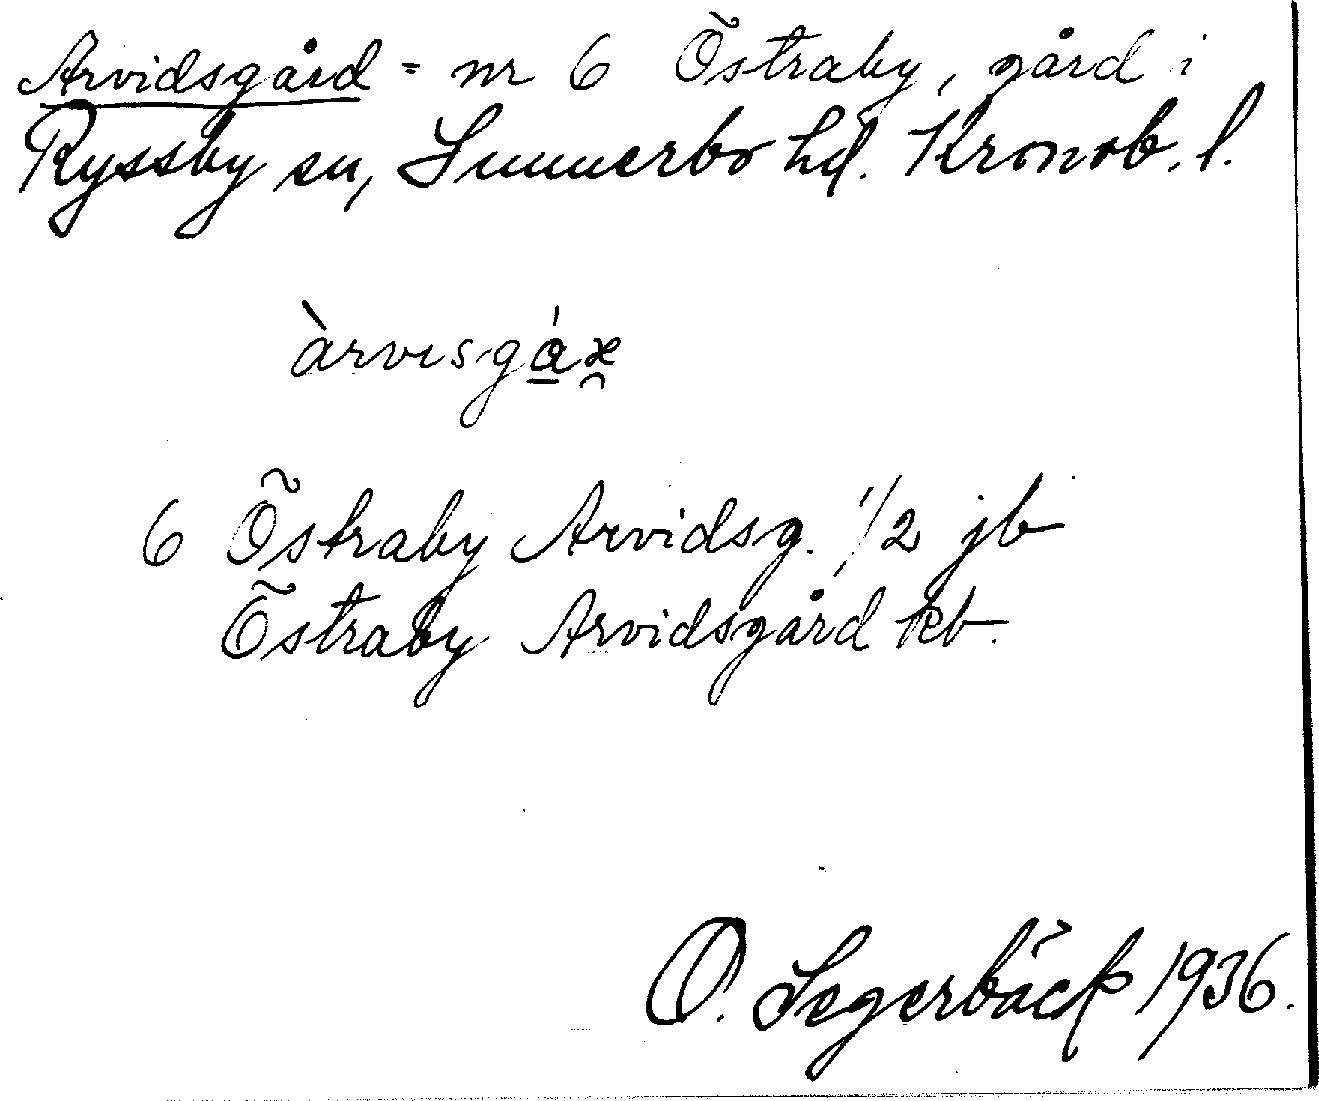 Arvidsgård = nr 6 Östraby, gård i
Ryssby sn, Sunnerbo hd. Kronob. l.
6 Östraby Arvidsg. 1/2 jb
Östraby Arvidsgård kb.
O. Segerbäck 1936.